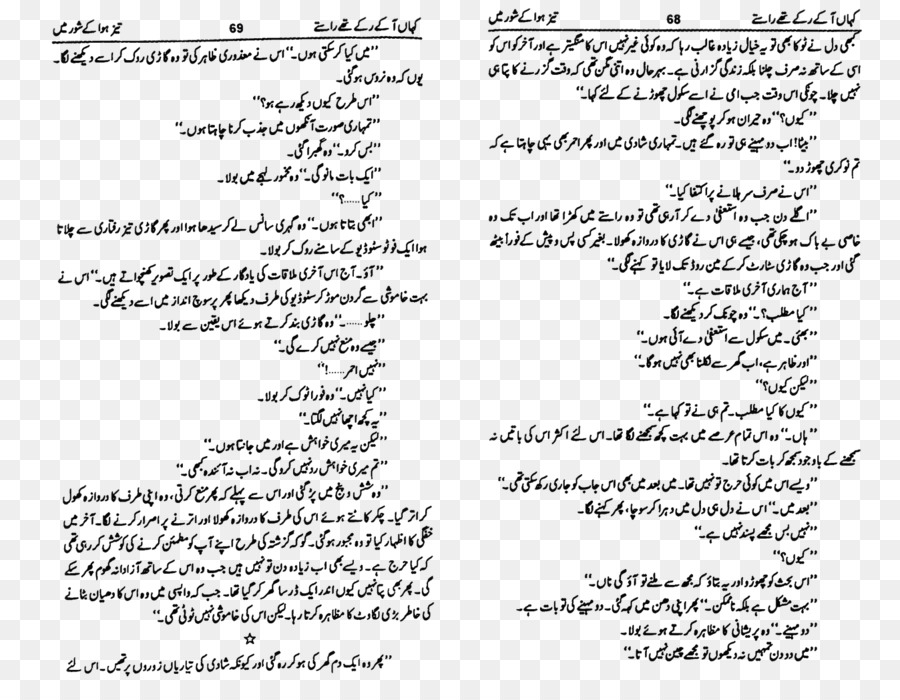 کہاں آ کے رکے تھے راستے 68 تیز ہوا کے شور میں
کبھی دل نے ٹوکا بھی تو یہ خیال زیادہ غالب رہا کہ وہ کوئی غیر نہیں اس کا منگیتر ہے اور آخر کو اس کو
اسی کے ساتھ نہ صرف چلنا بلکہ زندگی گزارنی ہے۔ بہرحال وہ اتنی مگن تھی کہ وقت گزرنے کا پتا ہی
نہیں چلا۔ چونکی اس وقت جب امی نے اسے سکول چھوڑنے کے لئے کہا۔‘‘
’’کیوں؟‘‘ وہ حیران ہو کر پوچھنے لگی۔
’’بیٹا! اب دو مہینے ہی تو رہ گئے ہیں۔ تمہاری شادی میں اور پھر احمر بھی یہی چاہتا ہے کہ
تم نوکری چھوڑ دو۔‘‘
’’اس نے صرف سر ہلانے پر اکتفا کیا۔‘‘
’’اگلے دن جب وہ استعفیٰ دے کر آ رہی تھی تو وہ راستے میں کھڑا تھا اور اب تک وہ
خاصی بے باک ہو چکی تھی، جیسے ہی اس نے گاڑی کا دروازہ کھولا۔ بغیر کسی پس و پیش کے فوراً بیٹھ
گئی اور جب وہ گاڑی سٹارٹ کر کے مین روڈ تک لایا تو کہنے لگی۔‘‘
’’آج ہماری آخری ملاقات ہے۔‘‘
’’کیا مطلب؟۔‘‘ وہ چونک کر دیکھنے لگا۔
’’بھئی۔ میں سکول سے استعفیٰ دے آئی ہوں۔‘‘
’’اور ظاہر ہے، اب گھر سے نکلنا بھی نہیں ہو گا۔‘‘
’’لیکن کیوں؟‘‘
’’کیوں کا کیا مطلب۔ تم ہی نے تو کہا ہے۔‘‘
’’ہاں۔‘‘ وہ اس تمام عرصے میں بہت کچھ سمجھنے لگا تھا۔ اس لئے اکثر اس کی باتیں نہ
سمجھنے کے باوجود سمجھ کر بات کرتا تھا۔
’’ویسے اس میں کوئی حرج تو نہیں تھا۔ میں بعد میں بھی اس جاب کو جاری رکھ سکتی تھی۔‘‘
’’بعد میں۔‘‘ اس نے دل ہی دل میں دہرا کر سوچا، پھر کہنے لگا۔
’’نہیں بس مجھے پسند نہیں ہے۔‘‘
’’کیوں؟‘‘
’’اس بحث کو چھوڑو اور یہ بتاؤ کہ مجھ سے ملنے تو آؤ گی ناں۔‘‘
’’بہت مشکل ہے بلکہ ناممکن۔‘‘ پھر اپنی دھن میں کہہ گئی۔ دو مہینے کی تو بات ہے۔
’’دو مہینے۔‘‘ وہ پریشانی کا مظاہرہ کرتے ہوئے بولا۔
’’میں دو دن تمہیں نہ دیکھوں تو مجھے چین نہیں آتا۔‘‘
کہاں آ کے رکے تھے راستے 69 تیز ہوا کے شور میں
’’میں کیا کر سکتی ہوں۔‘‘ اس نے معذوری ظاہر کی تو وہ گاڑی روک کر اسے دیکھنے لگا۔
یوں کہ وہ نروس ہو گئی۔
’’اس طرح کیوں دیکھ رہے ہو؟‘‘
’’تمہاری صورت آنکھوں میں جذب کرنا چاہتا ہوں۔‘‘
’’بس کرو۔‘‘ وہ گھبرا گئی۔
’’ایک بات مانو گی۔‘‘ وہ مخمور لہجے میں بولا۔
’’کیا......؟‘‘
’’ابھی بتاتا ہوں۔‘‘ وہ گہری سانس لے کر سیدھا ہوا اور پھر گاڑی تیز رفتاری سے چلاتا
ہوا ایک فوٹو سٹوڈیو کے سامنے روک کر بولا۔
’’آؤ۔ آج اس آخری ملاقات کی یادگار کے طور پر ایک تصویر کھنچواتے ہیں۔‘‘ اس نے
بہت خاموشی سے گردن موڑ کر سٹوڈیو کی طرف دیکھا پھر پرسوچ انداز میں اسے دیکھنے لگی۔
’’چلو......۔‘‘ وہ گاڑی بند کرتے ہوئے اس یقین سے بولا۔
’’جیسے وہ منع نہیں کرے گی۔‘‘
’’نہیں احمر......!‘‘
’’کیا نہیں۔‘‘ وہ فوراً ٹوک کر بولا۔
’’یہ کچھ اچھا نہیں لگتا۔‘‘
’’لیکن یہ میری خواہش ہے اور میں جانتا ہوں۔‘‘
’’تم میری خواہش رد نہیں کرو گی۔ نہ اب نہ آئندہ کبھی۔‘‘
’’وہ شش و پنج میں پڑ گئی اور اس سے پہلے کہ پھر منع کرتی، وہ اپنی طرف کا دروازہ کھول
کر اتر گیا۔ چکر کاٹتے ہوئے اس کی طرف کا دروازہ کھولا اور اترنے پر اصرار کرنے لگا۔ آخر میں
خفگی کا اظہار کیا تو وہ مجبور ہو گئی۔ گو کہ گزشتہ کی طرح اپنے آپ کو مطمئن کرنے کی کوشش کر رہی تھی
کہ کیا حرج ہے۔ ویسے بھی اب زیادہ دن تو نہیں ہیں جب وہ اس کے ساتھ آزادانہ گھوم پھر سکے
گی۔ پھر بھی پتا نہیں کیوں اندر ایک ڈر سا گھر کر گیا تھا۔ جب کہ واپسی میں وہ اس کا دھیان بٹانے
کی خاطر بڑی لگاوٹ کا مظاہرہ کرتا رہا۔ لیکن اس کی خاموشی نہیں ٹوٹی تھی۔‘‘
☆
’’پھر وہ ایک دم گھر کی ہو کر رہ گئی اور کیونکہ شادی کی تیاریاں زوروں پر تھیں۔ اس لئے